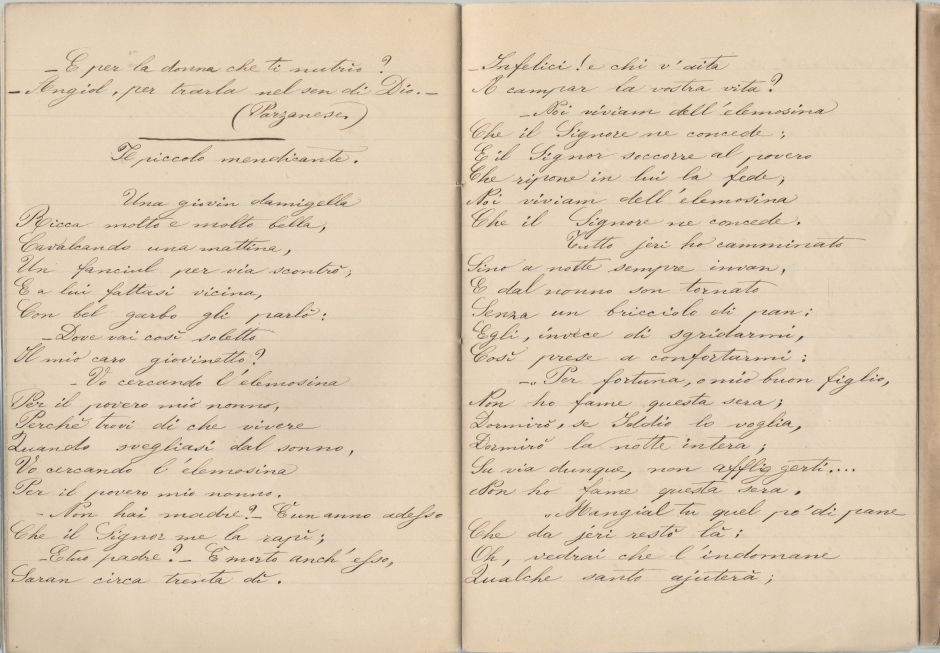 – E per la donna che ti nutrio?
– Angiol, per trarla nel sen di Dio. –
(Parzanese.)
Il piccolo mendicante.
Una giovin damigella
Ricca molto e molto bella,
Cavalcando una mattina,
Un fanciul per via scontrò;
E a lui fattasi vicina,
Con bel garbo gli parlò:
– Dove vai così soletto
Il mio caro giovinetto?
– Vo cercando l'elemosina
Per il povero mio nonno,
Perchè trovi di che vivere
Quando svegliasi dal sonno,
Vo cercando l'elemosina
Per il povero mio nonno.
– Non hai madre? – È un anno adesso
Che il Signor me la rapì;
– E tuo padre? – È morto anch'esso,
Saran circa trenta dì.
– Infelici! e chi v'aita
A campar la vostra vita?
– Noi viviam dell'elemosina
Che il Signore ne concede;
E il Signor soccorre al povero
Che ripone in lui la fede;
Noi viviam dell'elemosina
Che il Signore ne concede.
Tutto jeri ho camminato
Sino a notte sempre invan,
E dal nonno son tornato
Senza un bricciolo di pan;
Egli, invece di sgridarmi,
Così prese a confortarmi:
– „Per fortuna, o mio buon figlio,
Non ho fame questa sera;
Dormirò, se Iddio lo voglia,
Dormirò la notte intera;
Su via dunque, non affliggerti....
Non ho fame questa sera.
„Mangial tu quel pò di pane
Che da jeri restò là;
Oh, vedrai che l'indomane
Qualche santo ajuterà;